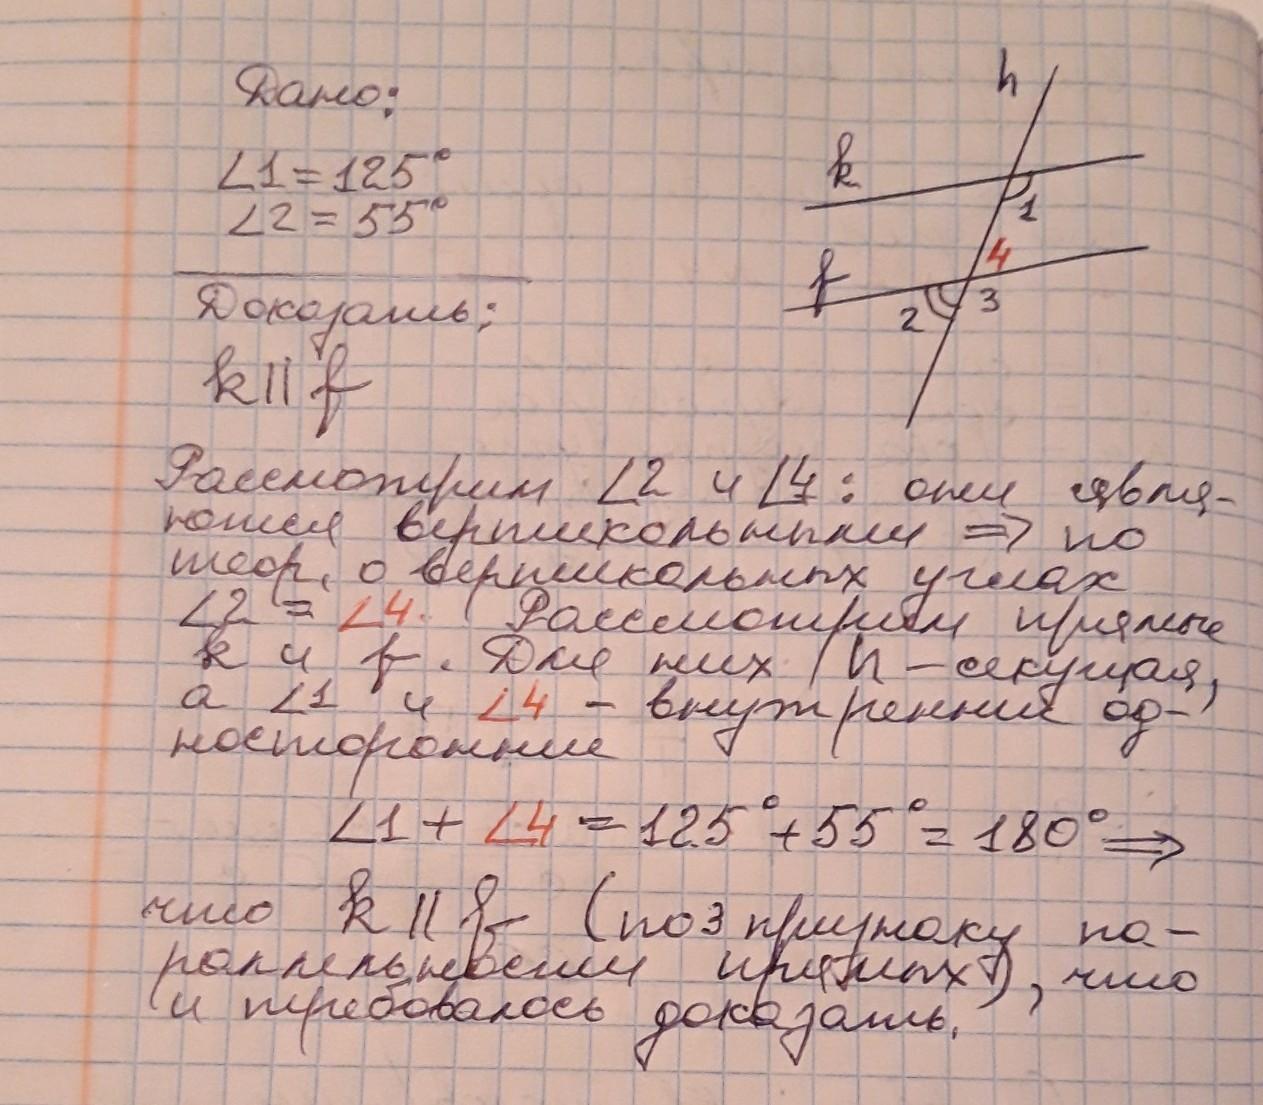 Дано:
h
∠1 = 125°
k
∠2 = 55°
1
4
f
Доказать:
2
3
k || f
Рассмотрим ∠2 и ∠4: они явля-
ются вертикальными => по
теор. о вертикальных углах
∠2 = ∠4. Рассмотрим прямые
k и f. Для них h – секущая,
а ∠1 и ∠4 – внутренние од-
носторонние
∠1 + ∠4 = 125° + 55° = 180° =>
что k || f (по 3 признаку па-
раллельности прямых), что
и требовалось доказать.